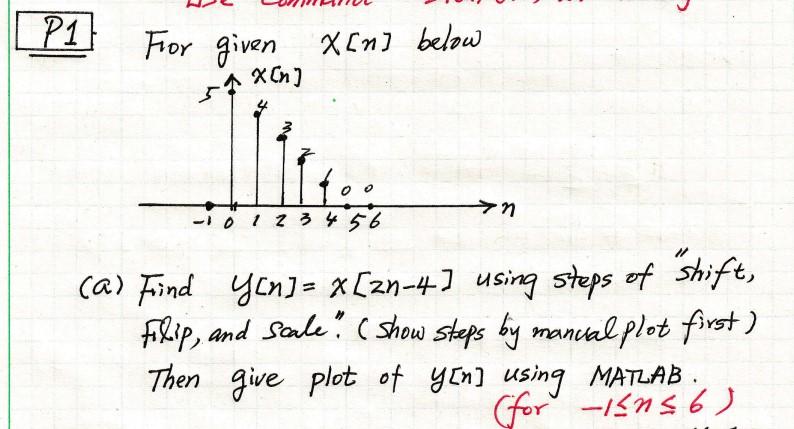 P1
For given X[n] below
X[n]
5
4
3
2
1
0 0
-1 0 1 2 3 4 5 6
n
(a) Find y[n] = x[2n-4] using steps of "shift,
Fllip, and Scale". (Show steps by manual plot first)
Then give plot of y[n] using MATLAB.
(for -1≤n≤6)